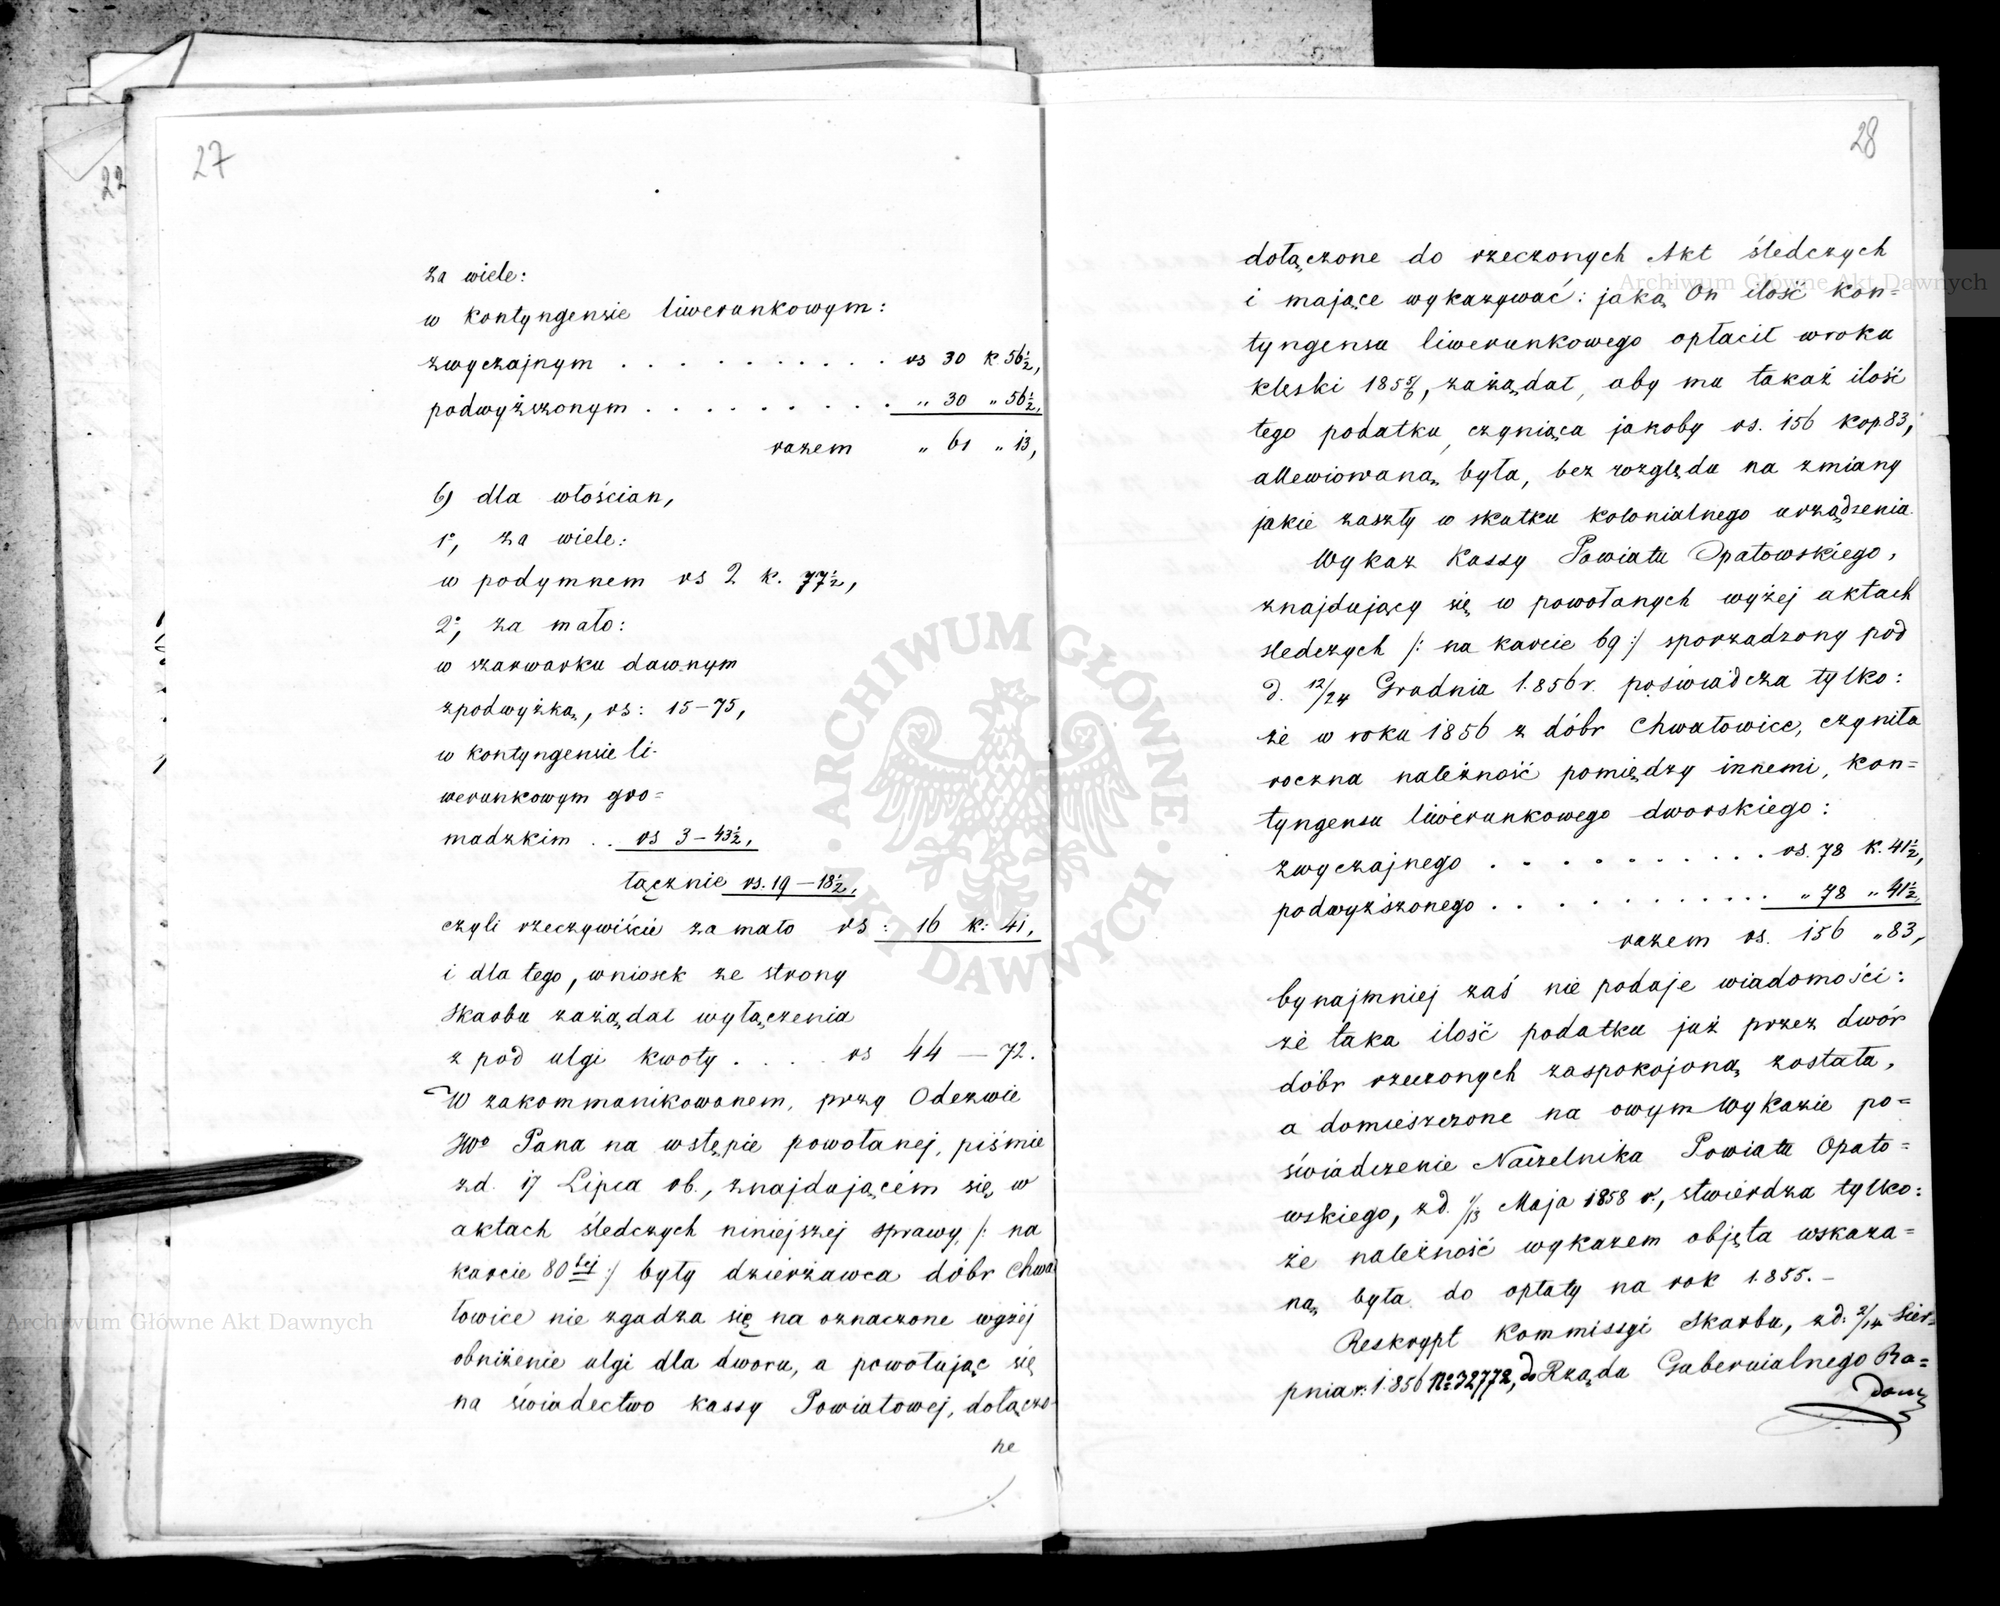 27
za wiele:
w kontyngensie liwerunkowym:
zwyczajnym . . . . . . . . . . rs 30 k 56½,
podwyższonym . . . . . . . . . " 30 " 56½,
razem " 61 " 13,
b) dla włościan,
1°, za wiele:
w podymnem rs 2 k. 77½,
2°, za mało:
w szarwarku dawnym
zpodwyżką, rs: 15–75,
w kontyngensie li-
werunkowym gro=
madzkim . . rs 3–43½,
łącznie rs. 19–18½,
czyli rzeczywiście za mało rs: 16 k: 41,
i dla tego, wniosek ze strony
Skarbu zażądał wyłączenia
z pod ulgi kwoty . . . . rs 44 — 72.
W zakommunikowanem, przy Odezwie
JWo Pana na wstępie powołanej, piśmie
zd. 17 Lipca rb., znajdującem się w
aktach śledczych niniejszej sprawy /: na
karcie 80tej :/ były dzierżawca dóbr Chwa
łowice nie zgadza się na oznaczone wyżej
obniżenie ulgi dla dworu, a powołując się
na świadectwo kassy Powiatowej, dołączo-
ne
28
dołączone do rzeczonych Akt śledczych
i mające wykazywać: jaką On ilość kon=
tyngensu liwerunkowego opłacił wroku
klęski 1855/6, zażądał, aby mu takaż ilość
tego podatku, czyniąca jakoby rs. 156 kop 83,
allewiowaną była, bez względu na zmiany
jakie zaszły w skutku kolonialnego urządzenia.
Wykaz Kassy Powiatu Opatowskiego,
znajdujący się w powołanych wyżej aktach
śledczych /: na karcie 69 :/ sporządzony pod
d. 12/24 Grudnia 1.856 r. poświadcza tylko:
że w roku 1856 z dóbr Chwałowice, czyniła
roczna należność pomiędzy innemi, kon=
tyngensu liwerunkowego dworskiego:
zwyczajnego . . . . . . . . . . rs. 78 k. 41½,
podwyższonego . . . . . . . . . . . " 78 " 41½,
razem rs. 156 " 83,
bynajmniej zaś nie podaje wiadomości:
że taka ilość podatku już przez dwór
dóbr rzeczonych zaspokojoną została,
a domieszczone na owym Wykazie po=
świadczenie Naczelnika Powiatu Opato=
wskiego, zd. 1/13 Maja 1858 r., stwierdza tylko:
że należność wykazem objęta wskaza=
ną była do opłaty na rok 1.855.–
Reskrypt Kommissyi Skarbu, zd: 2/14 Sier=
pnia r. 1.856 No 32772, do Rządu Gubernialnego Ra=
dom
ARCHIWUM GŁÓWNE · AKT DAWNYCH ·
Archiwum Główne Akt Dawnych
Archiwum Główne Akt Dawnych